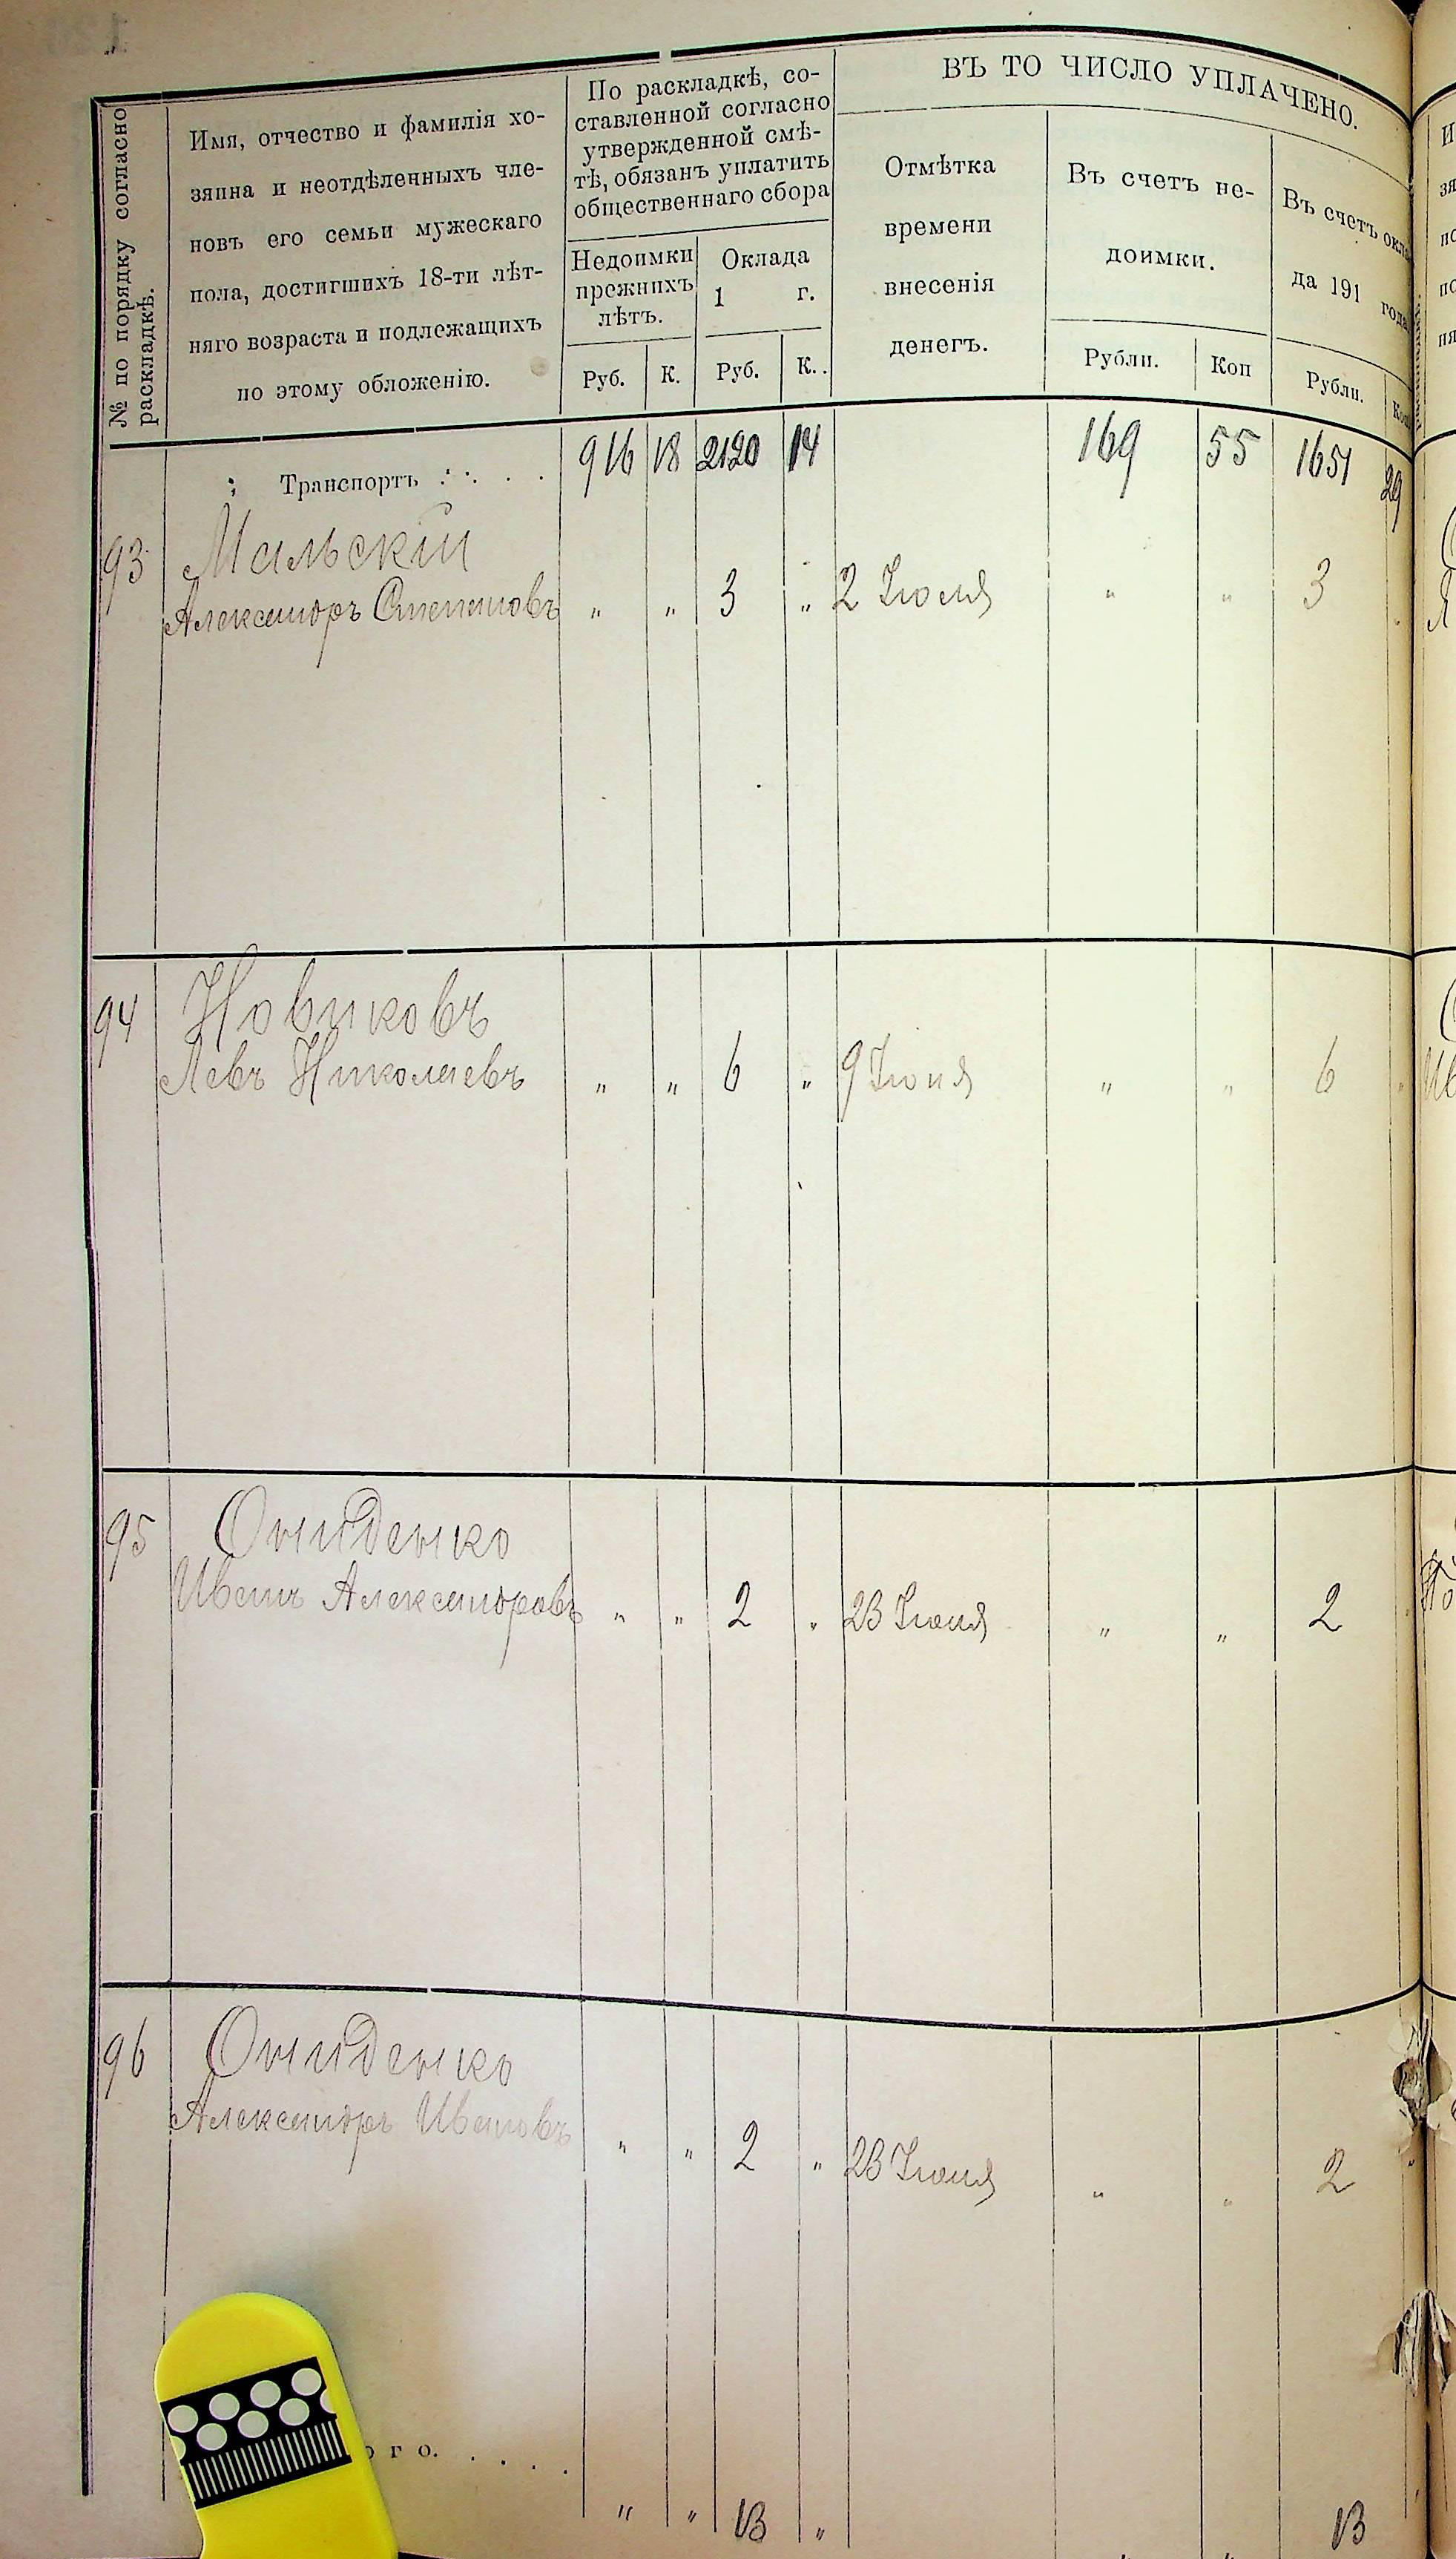 № по порядку согласно
раскладкѣ.
Имя, отчество и фамилія хо-
зяина и неотдѣленныхъ чле-
новъ его семьи мужескаго
пола, достигшихъ 18-ти лѣт-
няго возраста и подлежащихъ
по этому обложенію.
По раскладкѣ, со-
ставленной согласно
утвержденной смѣ-
тѣ, обязанъ уплатить
общественнаго сбора
Недоимки
прежнихъ
лѣтъ.
Оклада
1 г.
Руб. К. Руб. К.
ВЪ ТО ЧИСЛО УПЛАЧЕНО.
Отмѣтка
времени
внесенія
денегъ.
Въ счетъ не-
доимки.
Рубли. Коп
Въ счетъ окла
да 191 года
Рубли. Коп
Транспортъ . . . . 916 18 2120 14 169 55 1651 29
93 Мальскій
Александръ Степановъ " " 3 " 2 Іюля " " 3
94 Новиковъ
Левъ Николаевъ " " 6 " 9 Іюня " " 6 "
95 Ониденко
Иванъ Александровъ " " 2 " 23 Іюня " " 2 "
96 Ониденко
Александръ Ивановъ " " 2 " 23 Іюня " " 2 "
ого. . . . . " " 13 " 13